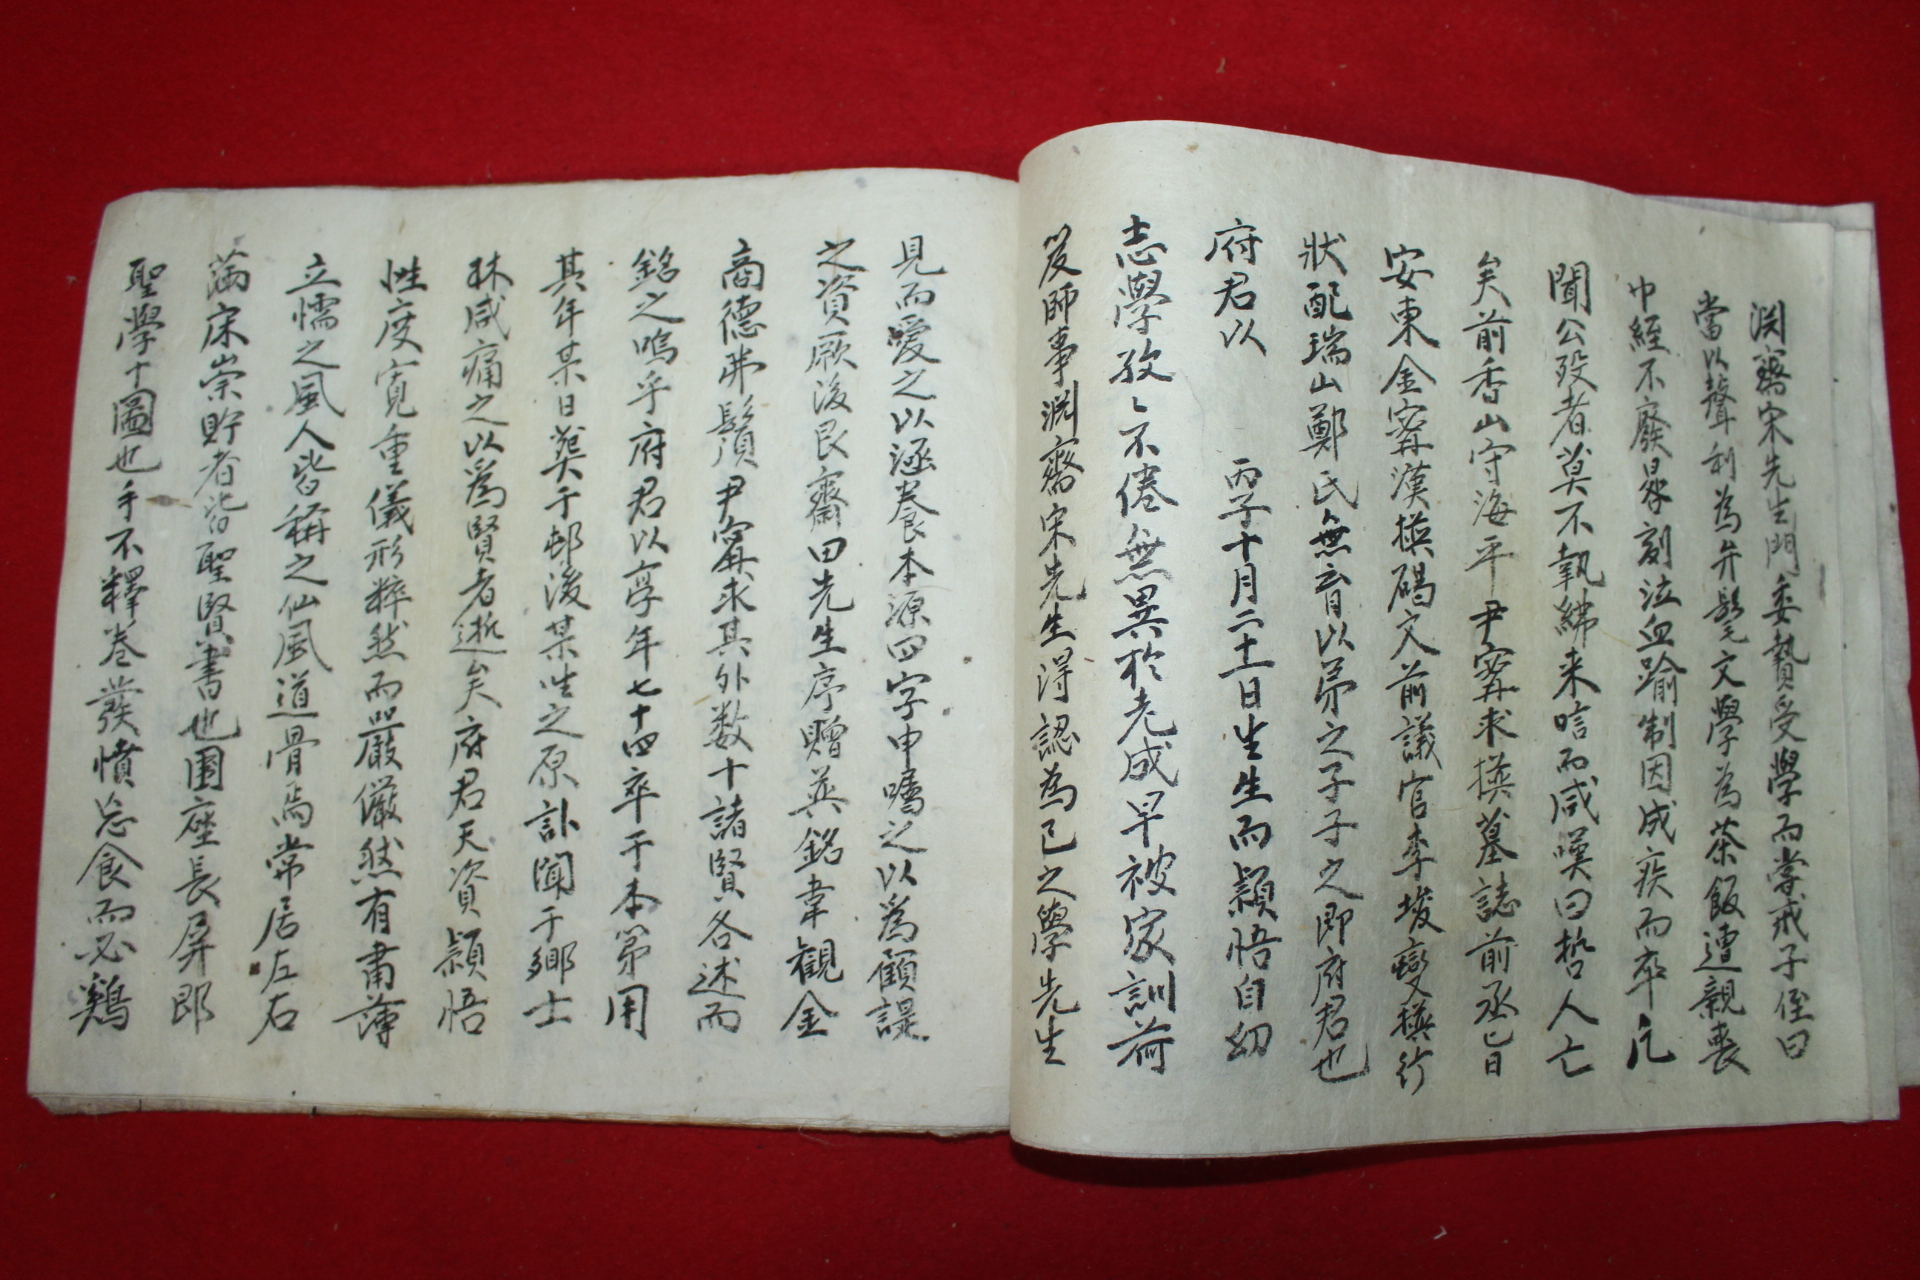 淵齋宋先生門委贄受學而常戒子侄曰
當以聲利為弁髦文學為茶飯遭親喪
中經不廢晷刻泣血踰制因成疾而卒凡
聞公歿者莫不執紼来唁而咸嘆曰哲人亡
矣前香山守海平尹寗求撰墓誌前丞乙日
安東金寗漢撰碣文前議官李埈奭撰行
狀配瑞山鄭氏無育以弟之子子之即府君也
府君以 丙子十月二十一日生生而穎悟自幼
志學孜〻不倦無異於老成早被家訓荷
笈師事淵齋宋先生得認為己之學先生
見而愛之以涵養本源四字申囑之以為顧諟
之資厥後艮齋田先生序贈英銘韋觀金
商德弗鬚尹甯求其外数十諸賢各述而
銘之嗚乎府君以享年七十四卒于本第用
其年某日葬于邨後某坐之原訃聞于鄉士
林咸痛之以為賢者逝矣府君天資穎悟
性度寬重儀形粹然而嚴儼然有肅薄
立懦之風人皆稱之仙風道骨焉常居左右
滿床崇貯者皆聖賢書也圍座長屏郎
聖學十圖也手不釋卷發憤忘食而必鷄